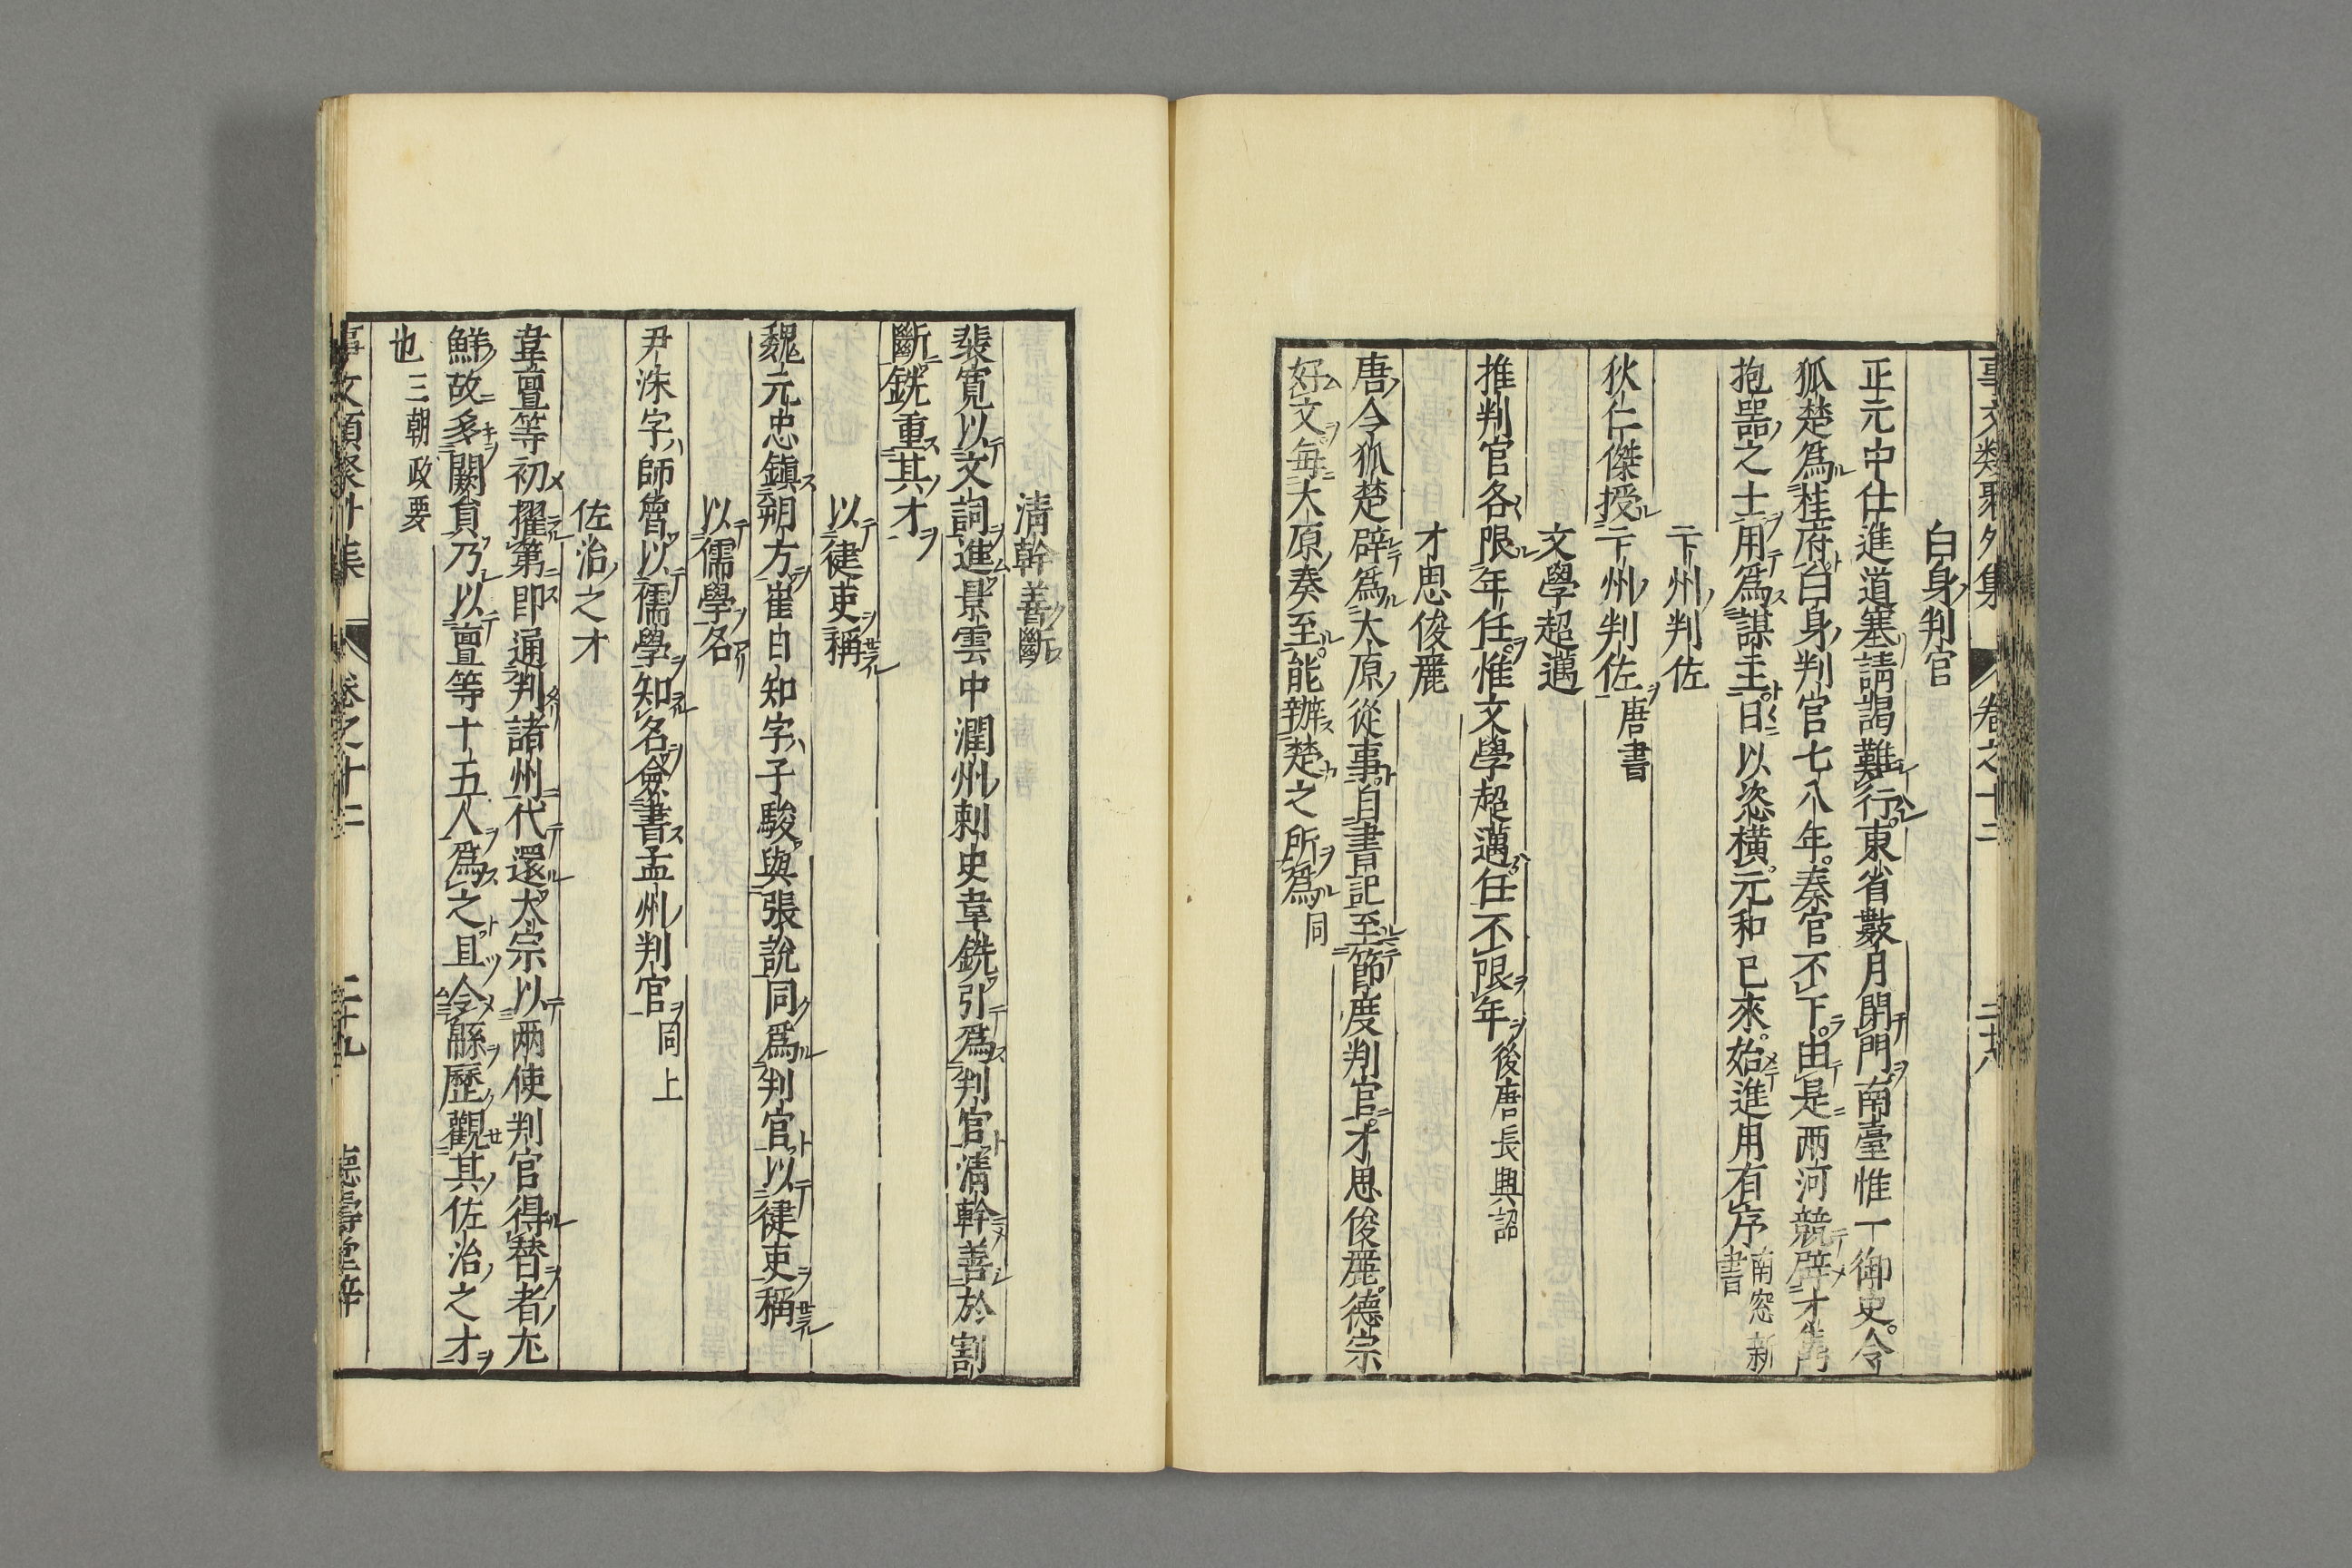 事文類聚外集 卷之十二 二十八
白身判官
正元中仕進道塞請謁難行東省數月閉門南臺惟一御史令
狐楚爲桂府白身判官七八年奏官不下由是兩河競辟才
抱器之士用爲謀主日以恣橫元和已來始進用有序南窓新書
卞州判佐
狄仁傑授卞州判佐唐書
文學超邁
推判官各限年任惟文學超邁任不限年後唐長興詔
才思俊麗
唐令狐楚辟爲太原從事自書記至節度判官才思俊麗德宗
好文每太原奏至能辨楚之所爲同
清幹善斷
裴寬以文詞進景雲中潤州刺史韋銑引爲判官清幹善於割
斷銑重其才
以健吏稱
魏元忠鎭朔方崔日知字子駿與張說同爲判官以健吏稱
以儒學名
尹洙字師魯以儒學知名僉書孟州判官同上
佐治之才
韋亶等初擢第即通判諸州代還太宗以兩使判官得替者尢
鮮故多闕員乃以亶等十五人爲之且令緜歷觀其佐治之才
也三朝政要
事文類聚外集 卷之十二 二十九